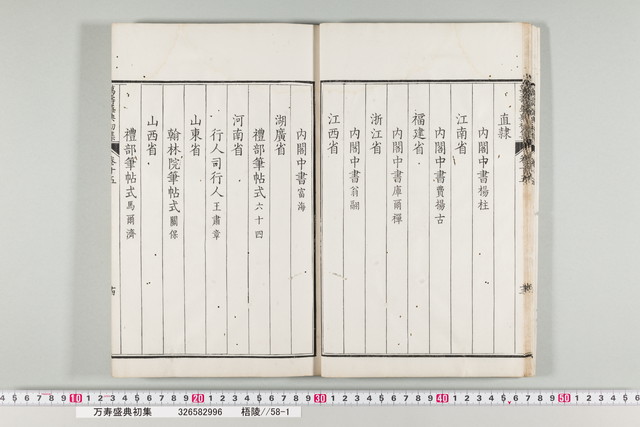 直隸
內閣中書楊柱
江南省
內閣中書費揚古
福建省
內閣中書庫爾禪
浙江省
內閣中書翁
江西省
內閣中書富海
湖廣省
禮部筆帖式六十四
河南省
行人司行人王肅章
山東省
翰林院筆帖式關保
山西省
禮部筆帖式馬爾濟
10 20 30 40 50
万寿盛典初集 326582996 梧陵//58-1